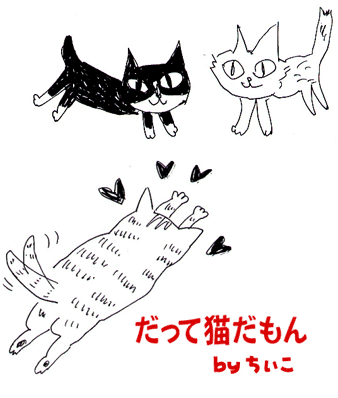 だって猫だもん
byちぃこ